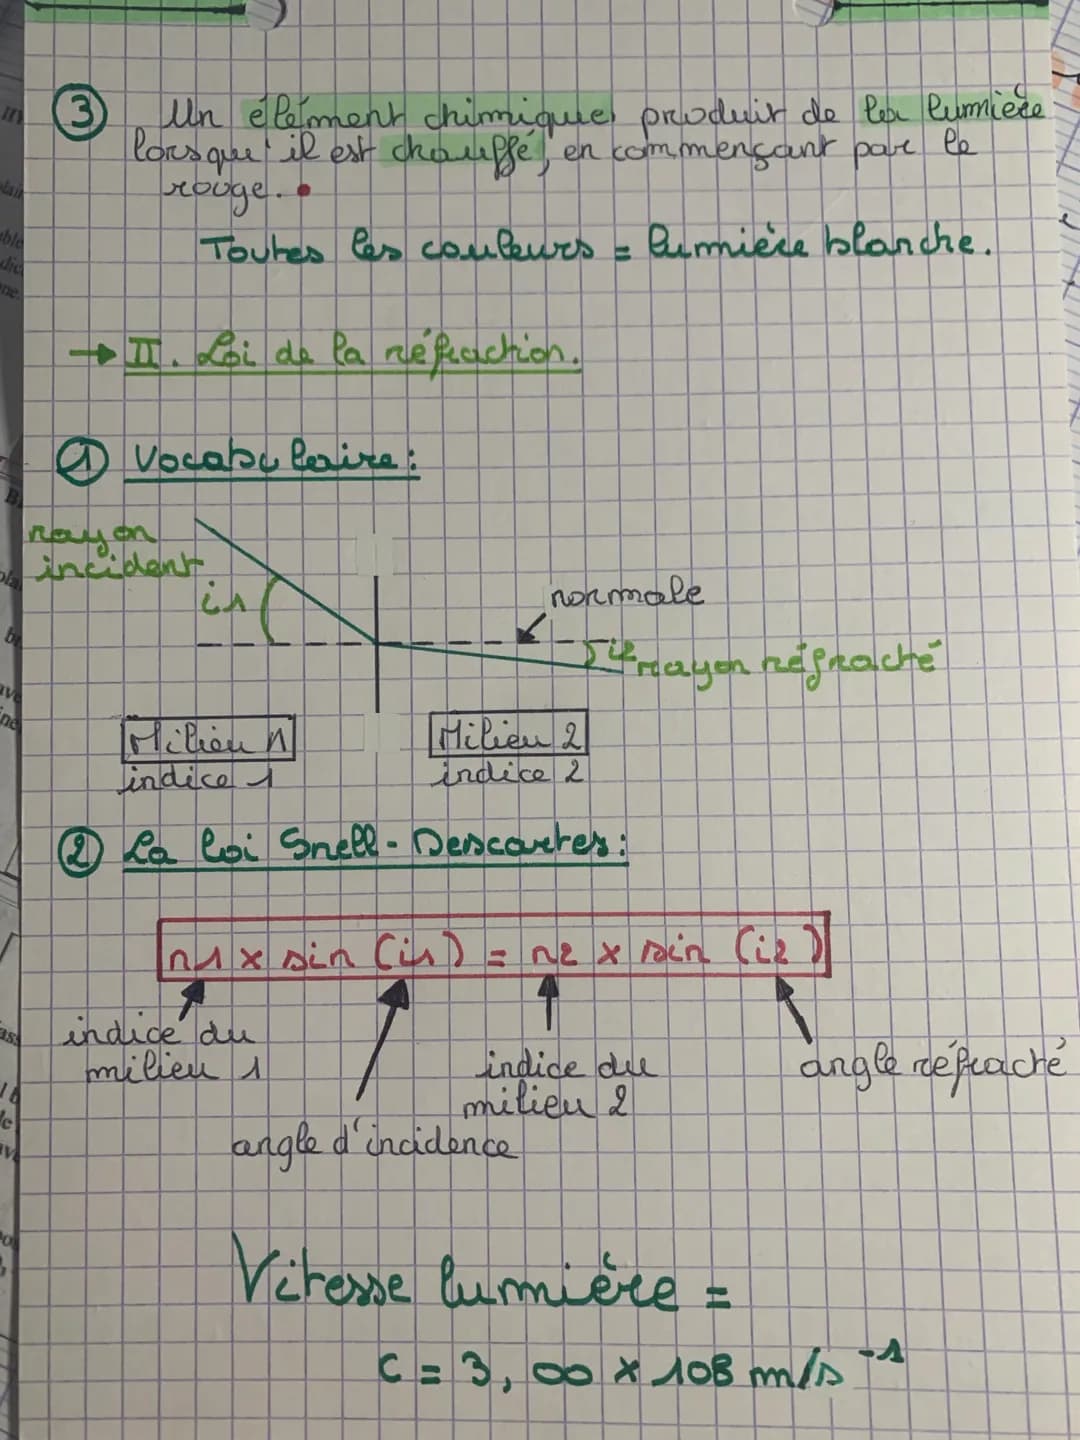 ③ Un élément chimique produit de la lumière
lorsqu'il est chauffé, en commençant par le
rouge.
Toutes les couleurs = lumière blanche.
→ II. Loi de la réfraction.
① Vocabulaire :
rayon
incident
i1
normale
i2
rayon réfracté
Milieu 1
indice 1
Milieu 2
indice 2
② La loi Snell-Descartes :
n1 x sin (i1) = n2 x sin (i2)
indice du
milieu 1
angle d'incidence
indice du
milieu 2
angle réfracté
Vitesse lumière =
c = 3,00 x 108 m/s⁻¹